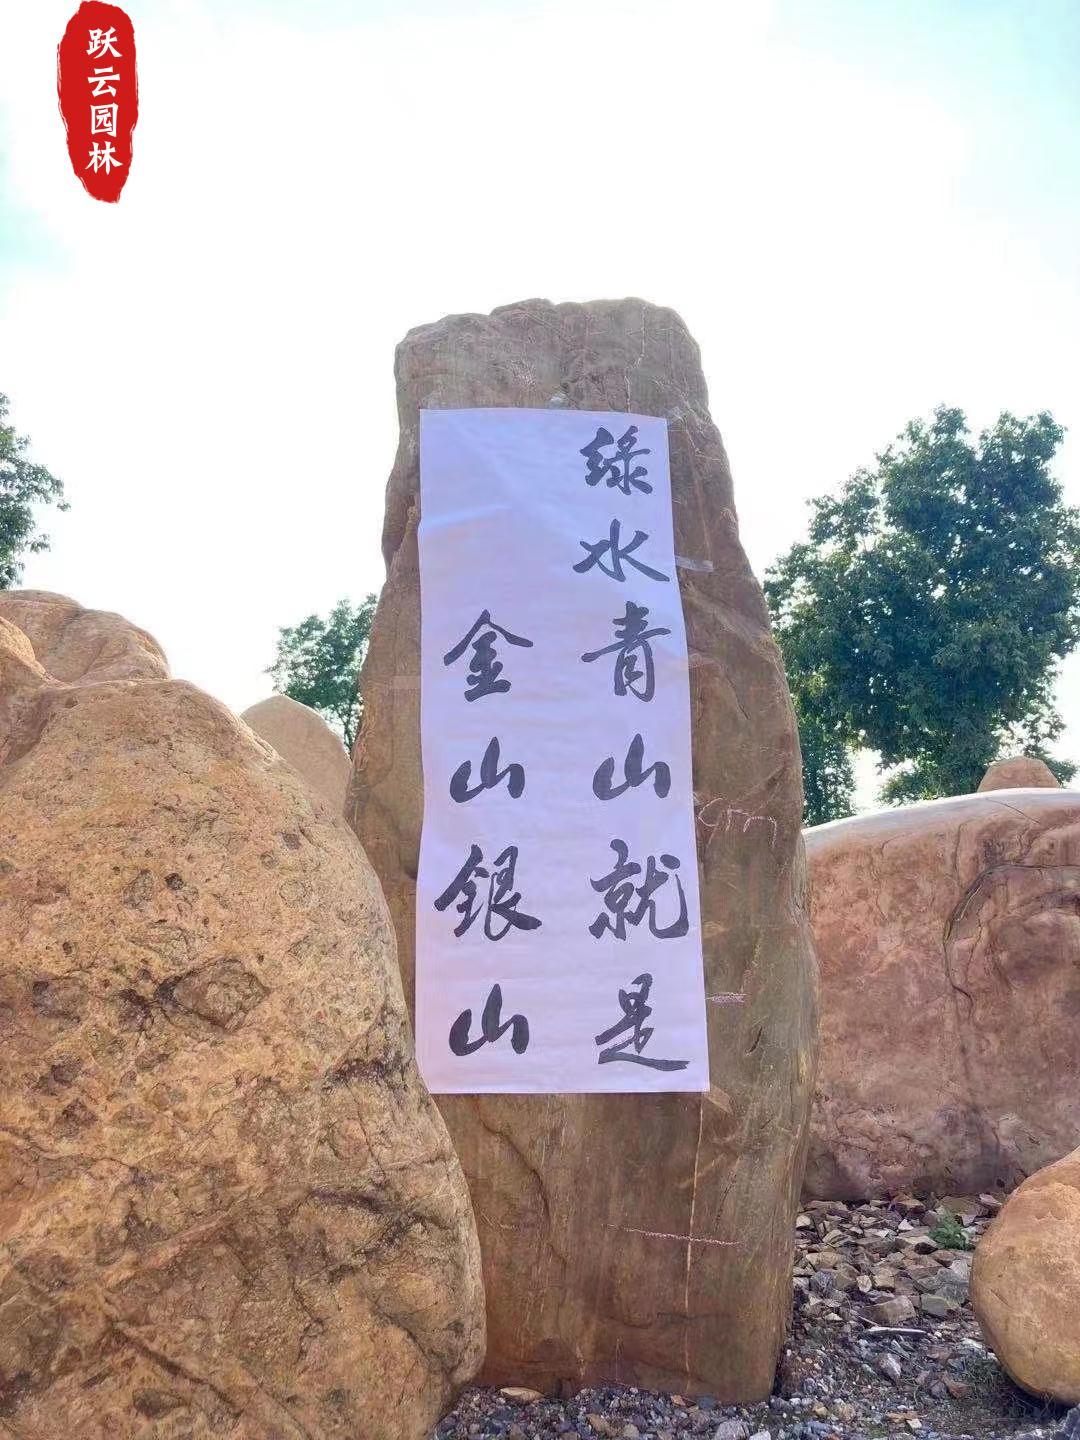 跃云园林
绿水青山就是
金山銀山